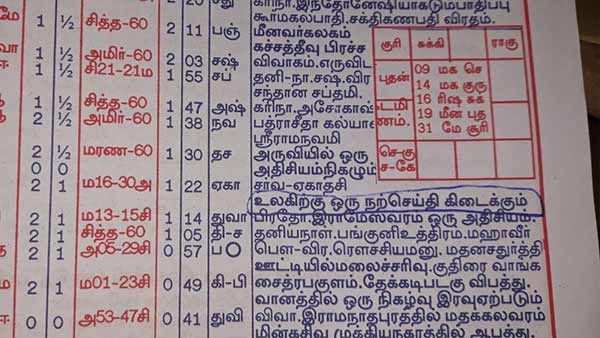 20 சது கரிநா.இந்தோனேஷியாகடும்பாதிப்பு
கூர்மகல்பாதி.சக்திகணபதி விரதம்.
1 ½ சித்த-60 2 11 பஞ் மீனவர்கலகம்
கச்சத்தீவு பிரச்ச
1 ½ அமிர்-60 2 03 சஷ் விவாகம்.எருவிட
1 சி21-21ம 1 55 சப் தனி-நா.சஷ்.விர
சந்தான சப்தமி.
1 ½ சித்த-60 1 47 அஷ் கரிநா.அசோகாஷ்
2 ½ அமிர்-60 1 38 நவ பத்ராசீதா கல்யா
ஸ்ரீராமநவமி
2 ½ மரண-60 1 30 தச அருவியில் ஒரு
0 0 அதிசியம்நிகழும்
2 1 ம16-30அ 1 22 ஏகா சாவ-ஏகாதசி
உலகிற்கு ஒரு நற்செய்தி கிடைக்கும்
2 1 ம13-15சி 1 14 துவா பிரதோ.இராமேஸ்வரம் ஒரு அதிசியம்.
2 1 சித்த-60 1 05 தி-ச தனியநாள்.பங்குனி உத்திரம்.மஹாவீர்
2 1 அ05-29சி 0 57 ப பௌ-விர.ரௌச்சியமனு. மதனசதுர்த்தி
ஊட்டியில்மலைச்சரிவு.குதிரை வாங்க
2 1 ம01-23சி 0 49 கி-பி சைத்ரபகுளம்.தேக்கடிபடகு விபத்து.
வானத்தில் ஒரு நிகழ்வு இரவுஏற்படும்
0 0 அ53-47சி 0 41 துவி விவா.இராமநாதபுரத்தில் மதக்கலவரம்
மின்கசிவு முக்கியநகரத்தில் ஆபத்து.
குரி சுக்கி ராகு
புதன் 09 மக செ
14 மக குரு
16 ரிஷ சுக
19 மீன புத
31 மே சூரி
செ-கு
ச-கே